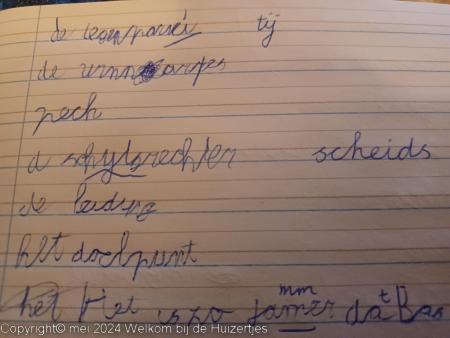 de tegenparéi tij
de winnaarfes
pech
d schijtsrechter scheids
de leiding
het doelpunt
het Het is zo jamer mm dat Bas
Copyright© mei 2024 Welkom bij de Huizertjes